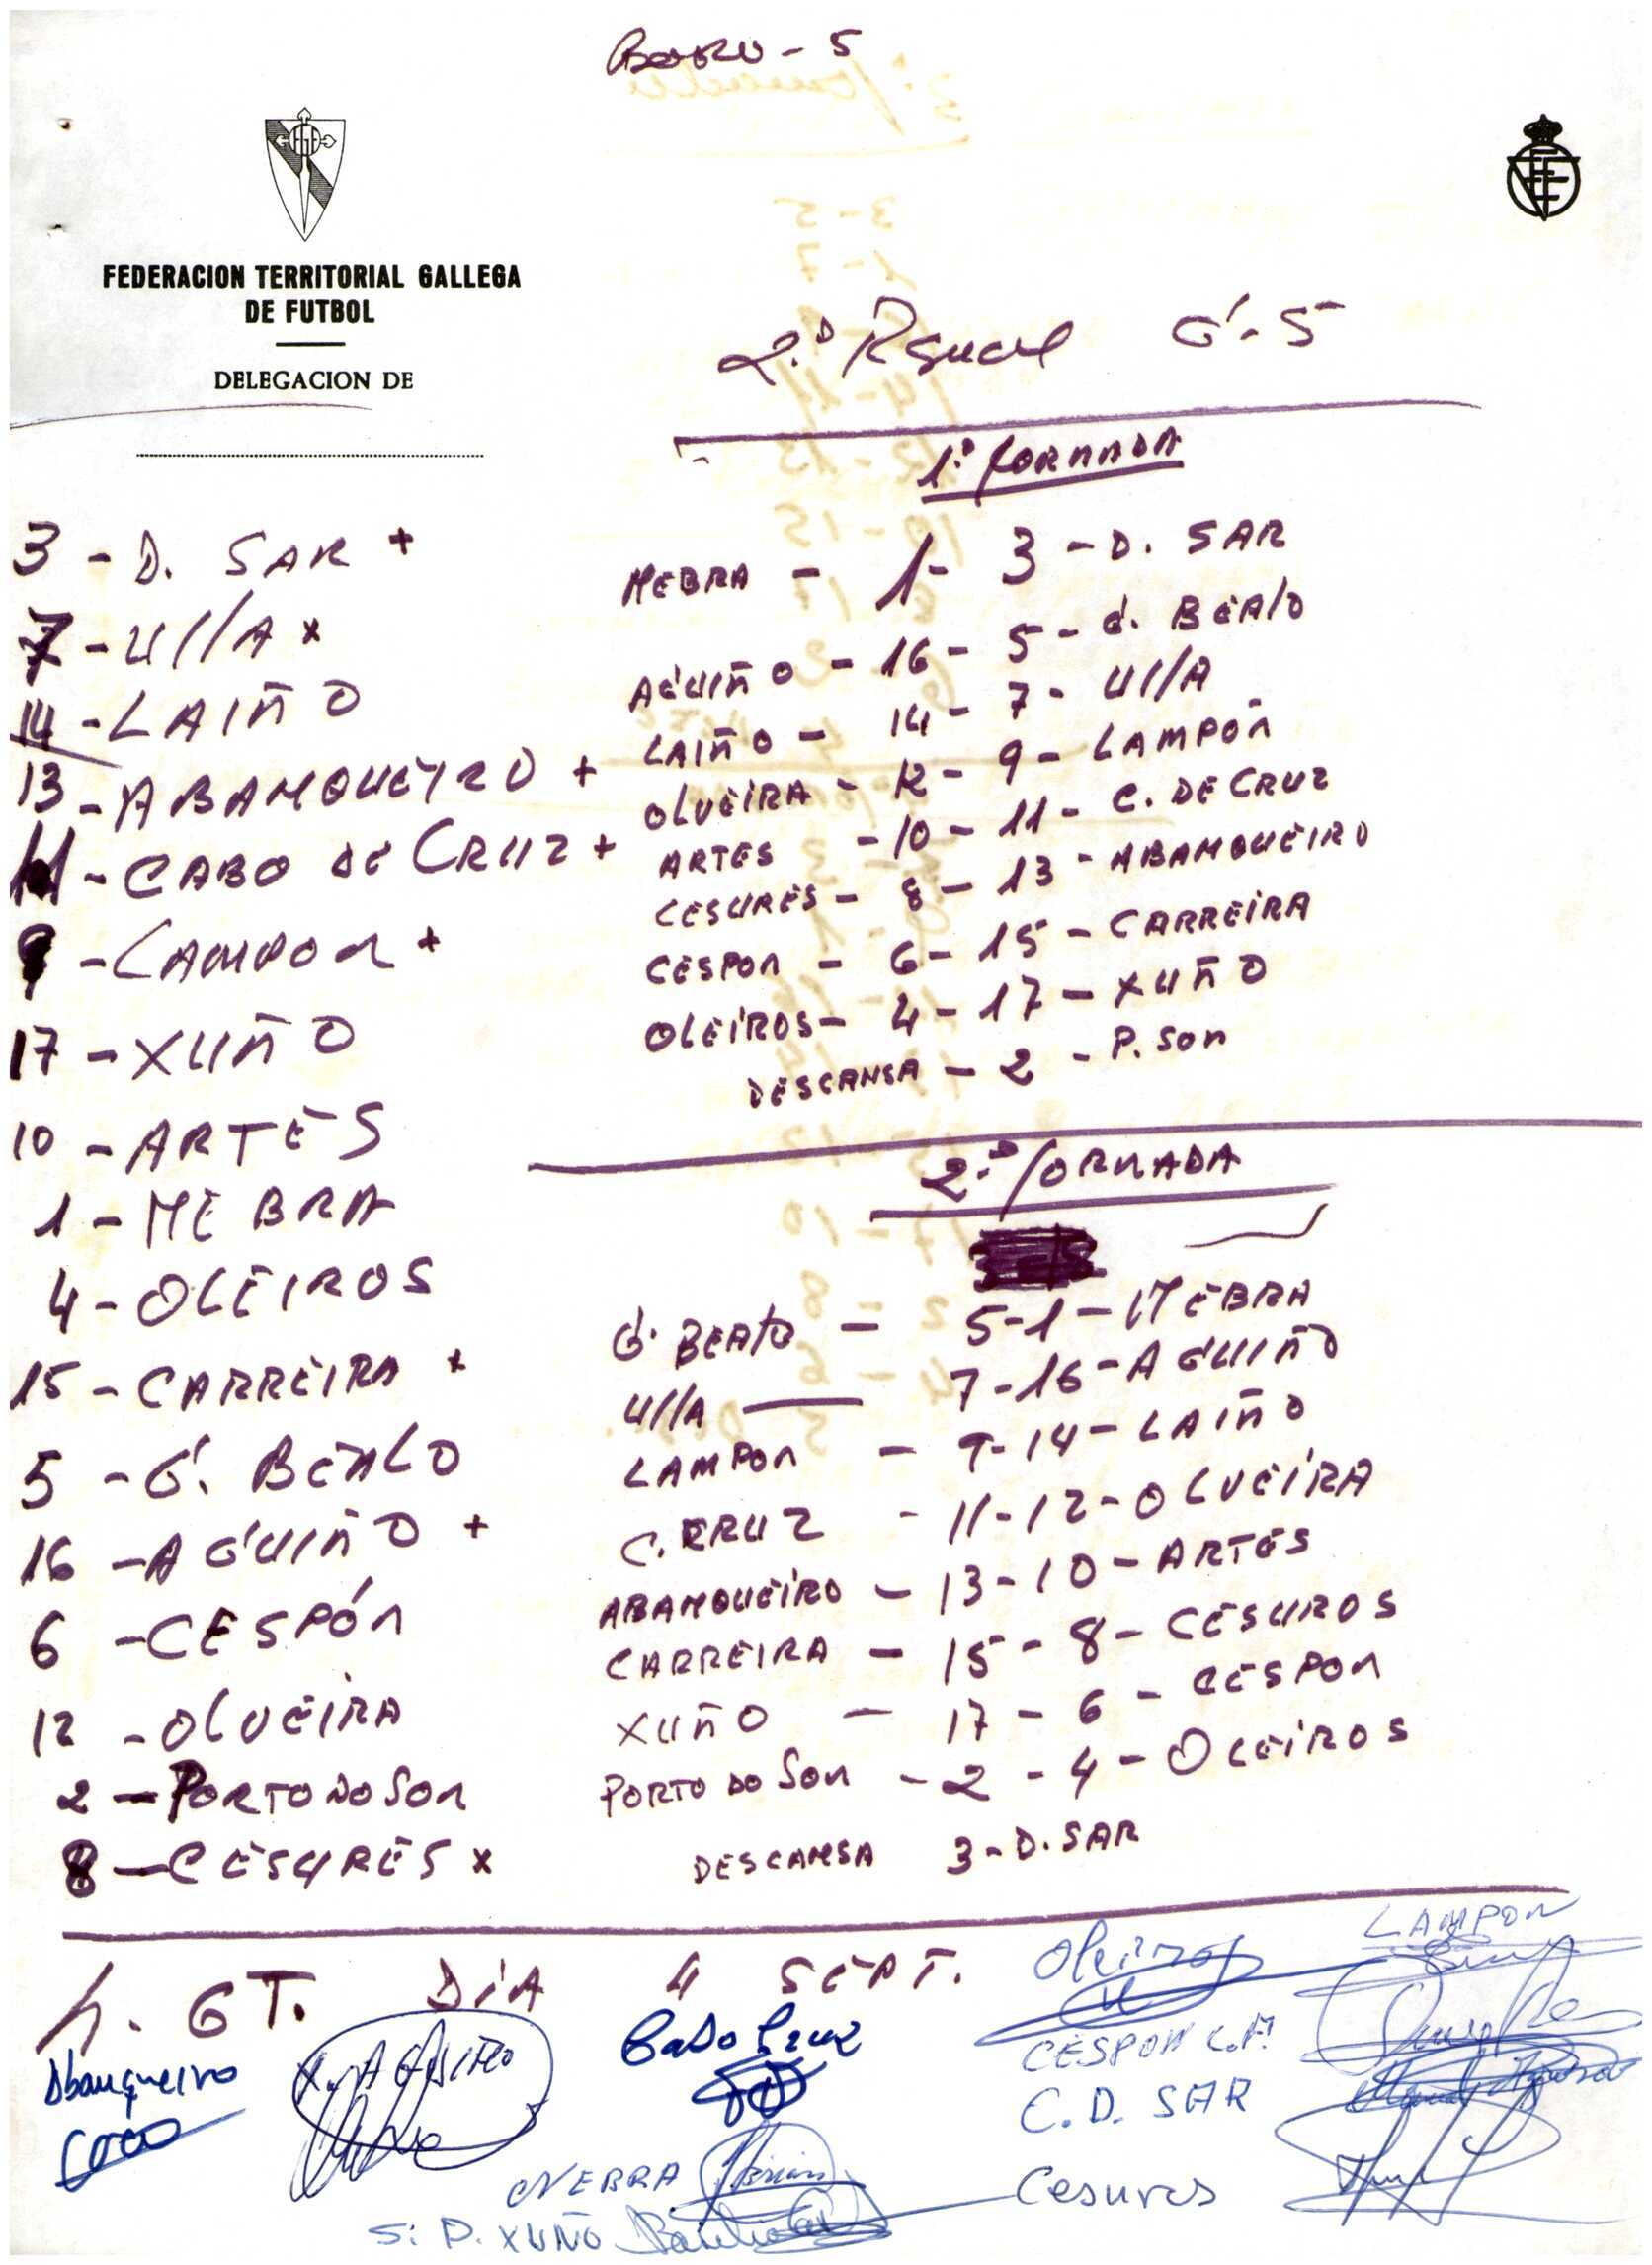 BORO - 5
FEDERACION TERRITORIAL GALLEGA
DE FUTBOL
DELEGACION DE
2.ª G - 5
1.ª JORNADA
3 - D. SAR +
7 - UllA x
14 - LAIÑO
13 - ABANQUEIRO +
11 - CABO DE CRUZ +
9 - LAMPON +
17 - XUÑO
10 - ARTES
1 - NEBRA
4 - OLEIROS
15 - CARREIRA x
5 - G. BEALO
16 - AGUIÑO +
6 - CESPÓN
12 - OLVEIRA
2 - PORTO DO SON
8 - CESURES x
NEBRA - 1 - 3 - D. SAR
AGUIÑO - 16 - 5 - G. BEAlO
LAIÑO - 14 - 7 - UllA
OLVEIRA - 12 - 9 - LAMPÓN
ARTES - 10 - 11 - C. DE CRUZ
CESURES - 8 - 13 - ABANQUEIRO
CESPON - 6 - 15 - CARREIRA
OLEIROS - 4 - 17 - XUÑO
DESCANSA - 2 - P. SON
2.ª JORNADA
G. BEAlO - 5 - 1 - NEBRA
UllA - 7 - 16 - AGUIÑO
LAMPON - 9 - 14 - LAIÑO
C. CRUZ - 11 - 12 - OLVEIRA
ABANQUEIRO - 13 - 10 - ARTES
CARREIRA - 15 - 8 - CESUROS
XUÑO - 17 - 6 - CESPON
PORTO DO SON - 2 - 4 - OLEIROS
DESCANSA 3 - D. SAR
DIA 4 SEPT.
Oleiros
LAMPON
Abanqueiro
AGUIÑO
Cabo Cruz
CESPON C.F.
C.D. SAR
NEBRA
Cesures
S. D. XUÑO